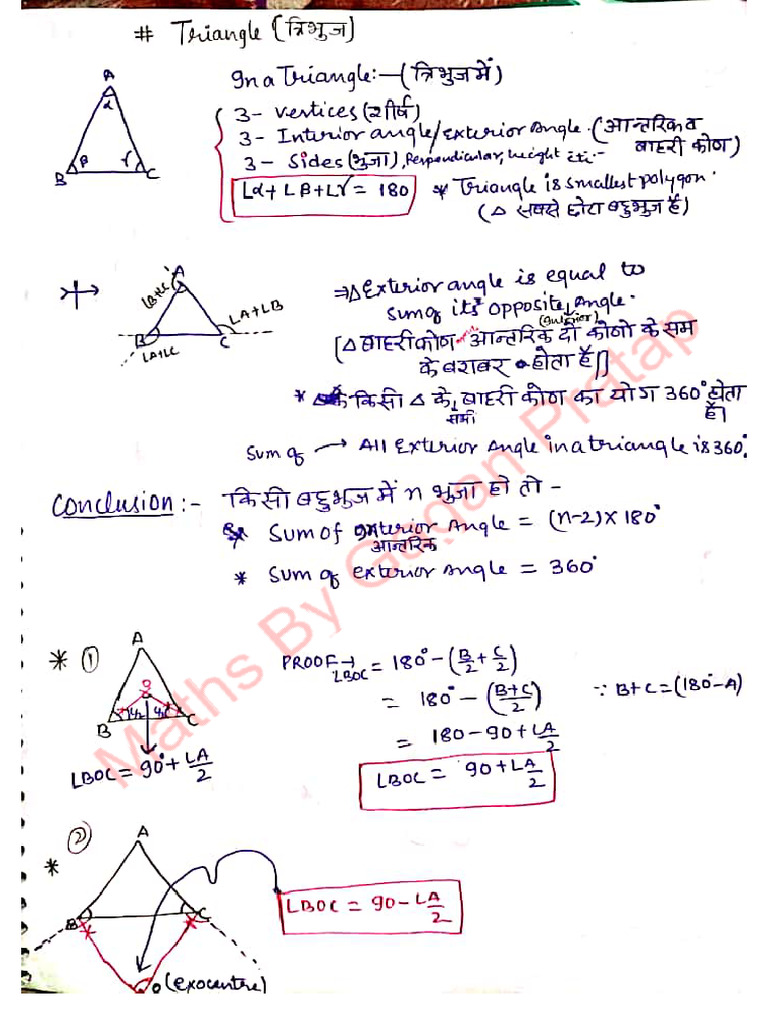 # Triangle (त्रिभुज)
In a Triangle:—(त्रिभुज में)
A
α
β
γ
B
C
3- Vertices (शीर्ष)
3- Interior angle/exterior Angle. (आन्तरिक व बाहरी कोण)
3- Sides (भुजा), Perpendicular, height etc.-
∠α+∠β+∠γ = 180
* Triangle is smallest polygon.
(Δ सबसे छोटा बहुभुज है)
A
∠B+∠C
∠A+∠B
B
C
∠A+∠C
⇒ Δ Exterior angle is equal to
sum of its opposite, Angle.
(interior)
[Δ बाहरी कोण आन्तरिक दो कोणो के सम
के बराबर होता है]
* किसी Δ के बाहरी कोण का योग 360° होता
सभी
है।
Sum of → All Exterior Angle in a triangle is 360°
Conclusion:- किसी बहुभुज में n भुजा हो तो -
* Sum of interior Angle = (n-2)×180°
आन्तरिक
* Sum of exterior Angle = 360°
Maths By Gagan Pratap
* ①
A
O
B
C
∠BOC = 90°+∠A/2
PROOF→ ∠BOC = 180°-(B/2+C/2)
= 180°-(B+C/2) ∵ B+C=(180°-A)
= 180-90+∠A/2
∠BOC = 90+∠A/2
* ②
A
B
C
∠BOC = 90-∠A/2
O (exocentre)